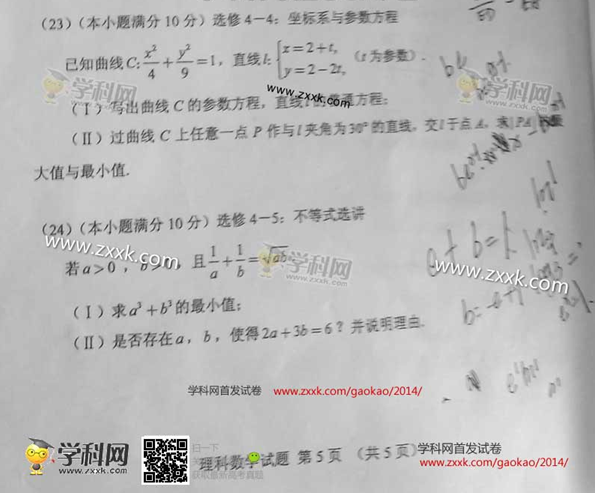 (23)(本小题满分10分)选修4—4:坐标系与参数方程
已知曲线C:x²/4+y²/9=1,直线l:{x=2+t, y=2-2t, (t为参数).
学科网
www.zxxk.com
(Ⅰ)写出曲线C的参数方程,直线l的普通方程;
(Ⅱ)过曲线C上任意一点P作与l夹角为30°的直线,交l于点A,求|PA|的最
大值与最小值.
(24)(本小题满分10分)选修4—5:不等式选讲
www.zxxk.com
若a>0,b>0,且1/a+1/b=√ab
学科网
www.zxxk.com
(Ⅰ)求a³+b³的最小值;
(Ⅱ)是否存在a,b,使得2a+3b=6?并说明理由.
a+b=1
学科网首发试卷 www.zxxk.com/gaokao/2014/
学科网
www.zxxk.com
扫一下
获取最新高考真题
理科数学试题 第5页 (共5页)
学科网首发试卷
www.zxxk.com/gaokao/2014/